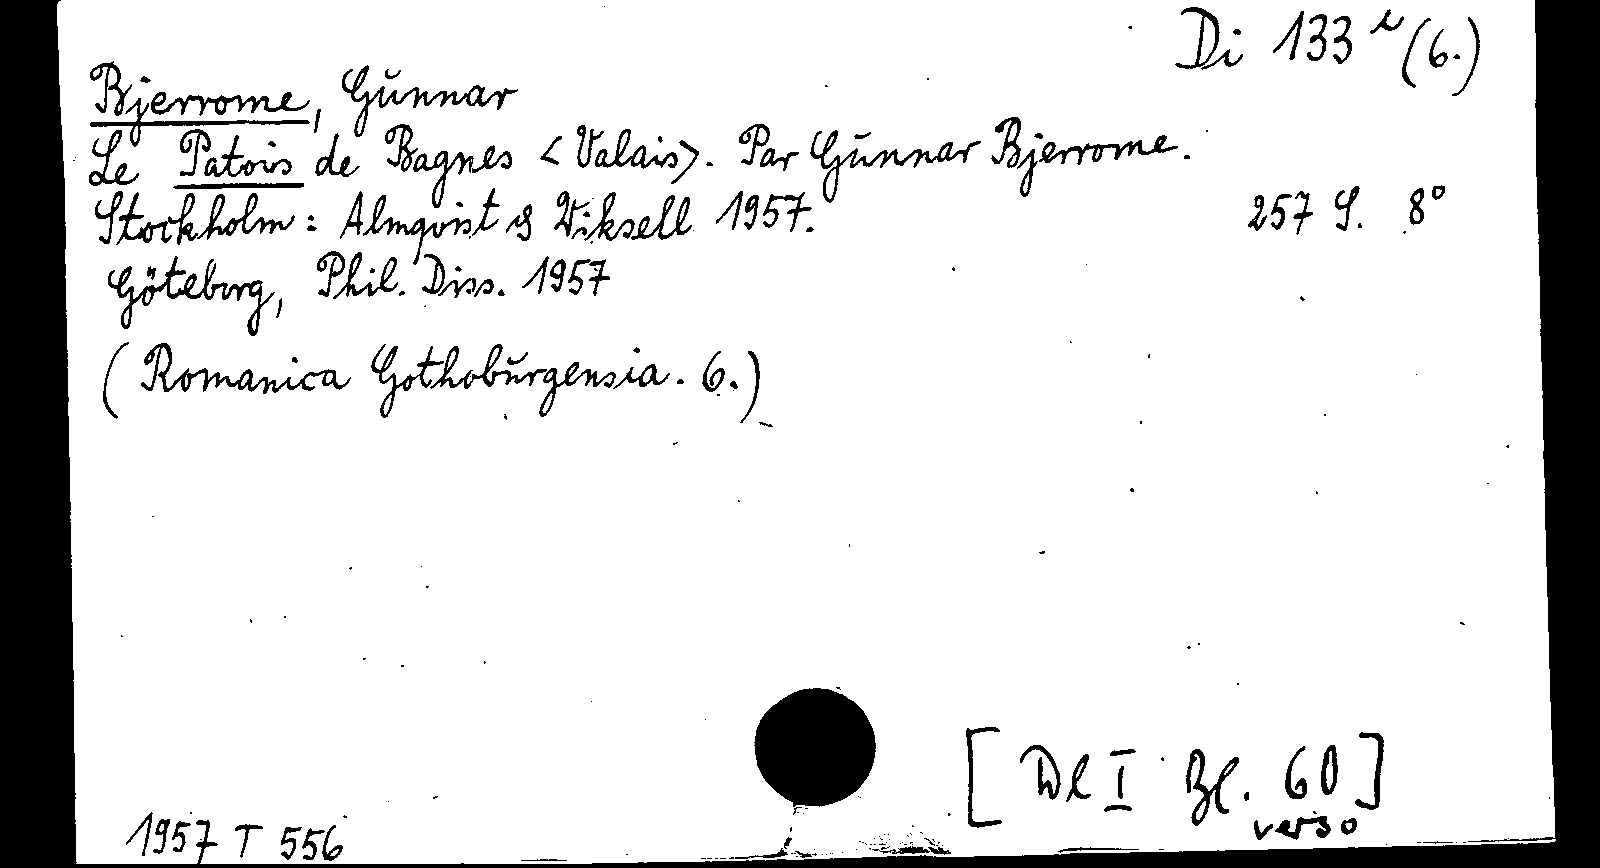 Di 133 i (6.)
Bjerrome, Gunnar
Le Patois de Bagnes <Valais>. Par Gunnar Bjerrome.
Stockholm: Almqvist & Wiksell 1957. 257 S. 8°
Göteborg, Phil. Diss. 1957
(Romanica Gothoburgensia. 6.)
[Dl I Bl. 60]
verso
1957 T 556